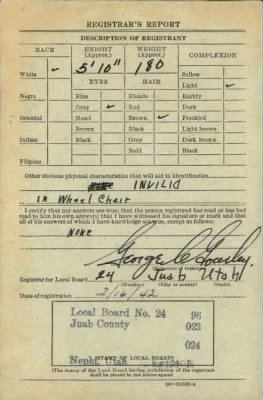 REGISTRAR'S REPORT
DESCRIPTION OF REGISTRANT
RACE HEIGHT (Approx.) WEIGHT (Approx.) COMPLEXION
White ✓ 5' 10" 180 Sallow
EYES HAIR Light ✓
Negro Blue Blonde Ruddy
Gray ✓ Red Dark
Oriental Hazel Brown ✓ Freckled
Brown Black Light brown
Indian Black Gray Dark brown
Bald Black
Filipino
Other obvious physical characteristics that will aid in identification
INVILID
in Wheel Chair
I certify that my answers are true; that the person registered has read or has had
read to him his own answers; that I have witnessed his signature or mark and that
all of his answers of which I have knowledge are true, except as follows:
None
George C
(Signature of registrar)
Registrar for Local Board 24 Juab Utah
(Number) (City or county) (State)
Date of registration 2/16/42
Local Board No. 24 96
Juab County 023
024
Nephi, Utah
STAMP OF LOCAL BOARD
(The stamp of the Local Board having jurisdiction of the registrant
shall be placed in the above space)